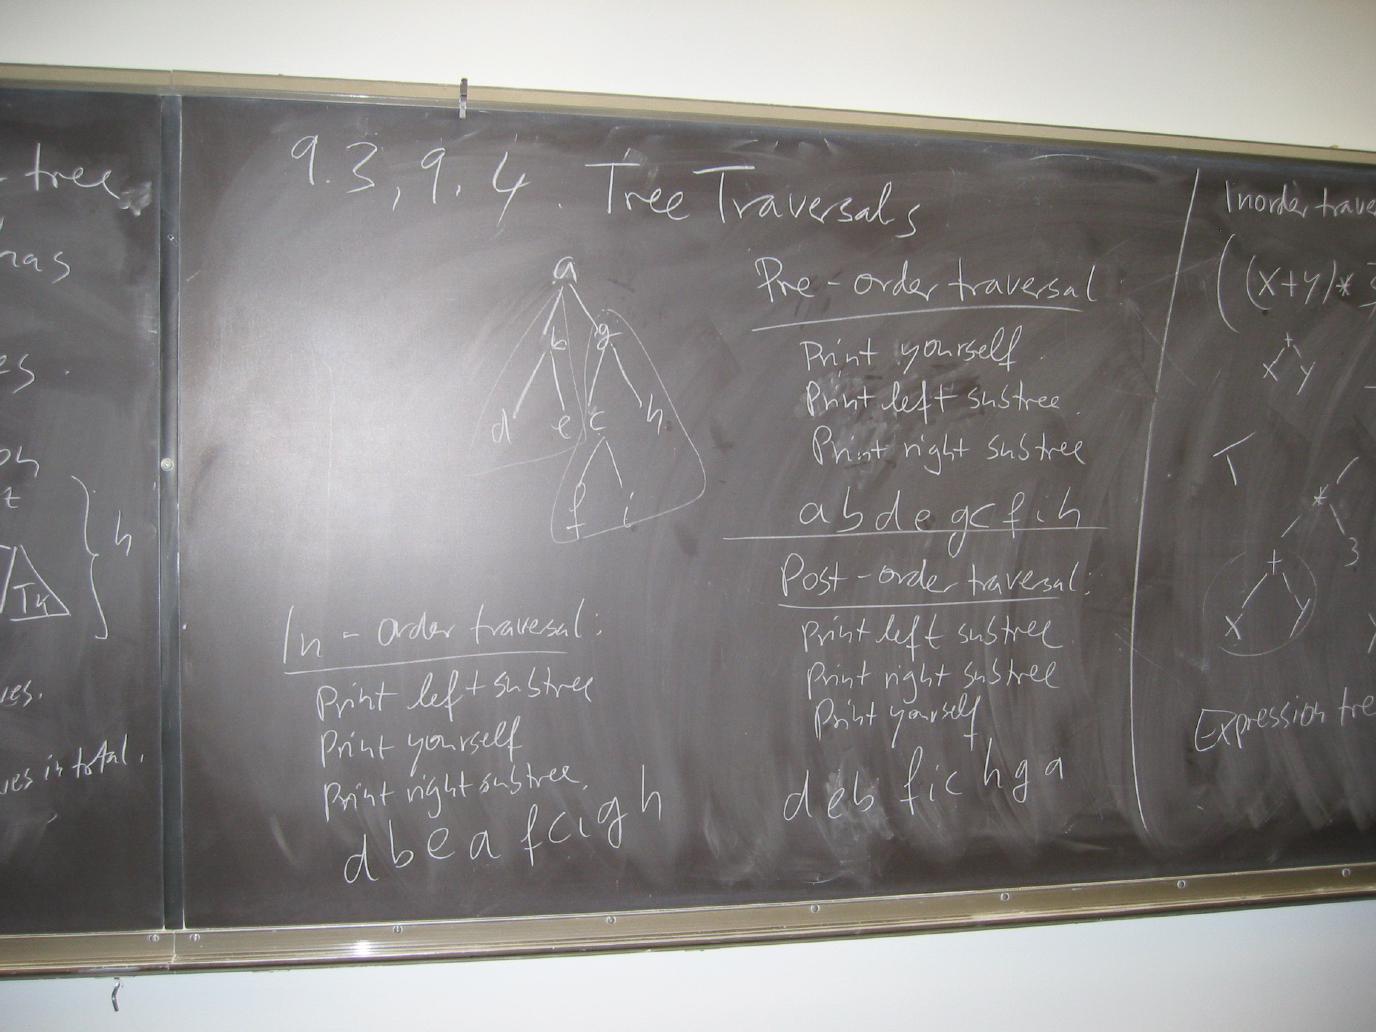 tree
has
h
Tk
in total.
9.3, 9.4. Tree Traversals
a
b g
d e c h
f i
In-order traversal:
Print left subtree
Print yourself
Print right subtree.
d b e a f c i g h
Pre-order traversal:
Print yourself.
Print left subtree.
Print right subtree
a b d e g c f i h
Post-order traversal:
Print left subtree
Print right subtree
Print yourself
d e b f i c h g a
Inorder
((x+y)*
+
x y
T
*
+ 3
x y
Expression